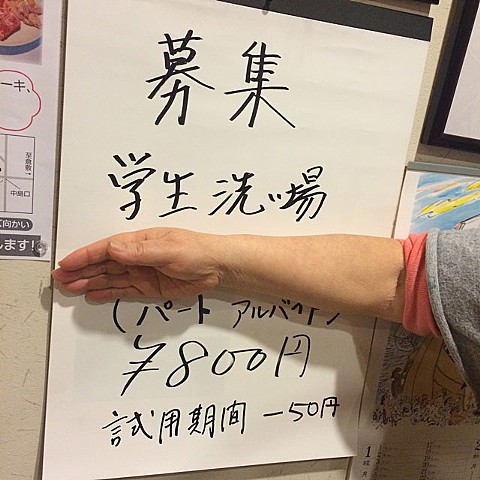 募集
学生洗い場
(パート アルバイト)
¥800円
試用期間 -50円
ーキ、
至倉敷→
中島口
向かい
します!
1